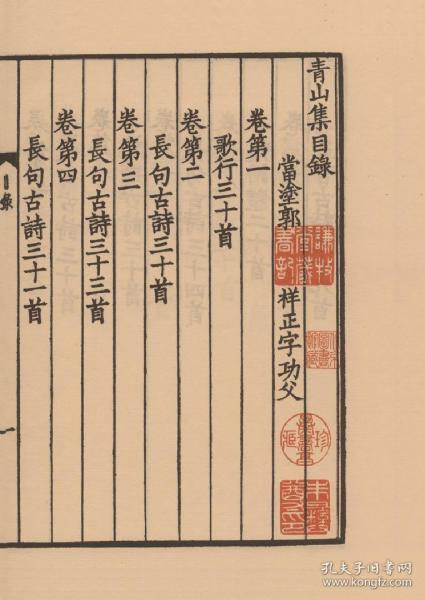 青山集目錄
當塗郭祥正字功父
卷第一
歌行三十首
卷第二
長句古詩三十首
卷第三
長句古詩三十三首
卷第四
長句古詩三十一首
目錄
一
孔夫子旧书网
www.kongfz.com